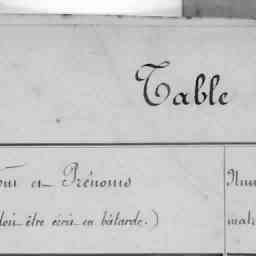 Table
et Prénoms
doit être écrit en bâtarde.)